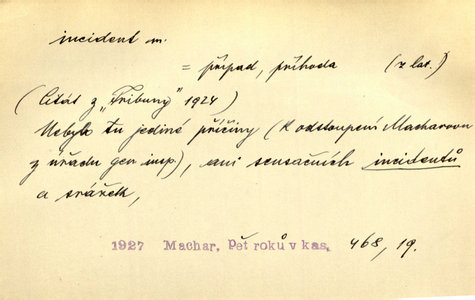 incident m.
= případ, příhoda (z lat.)
(Citát z „Tribuny" 1924)
Nebylo tu jediné příčiny (k odstoupení Macharovu
z úřadu gen insp.), ani sensačních incidentů
a srážek,
1927 Machar, Pět roků v kas. 468, 19.